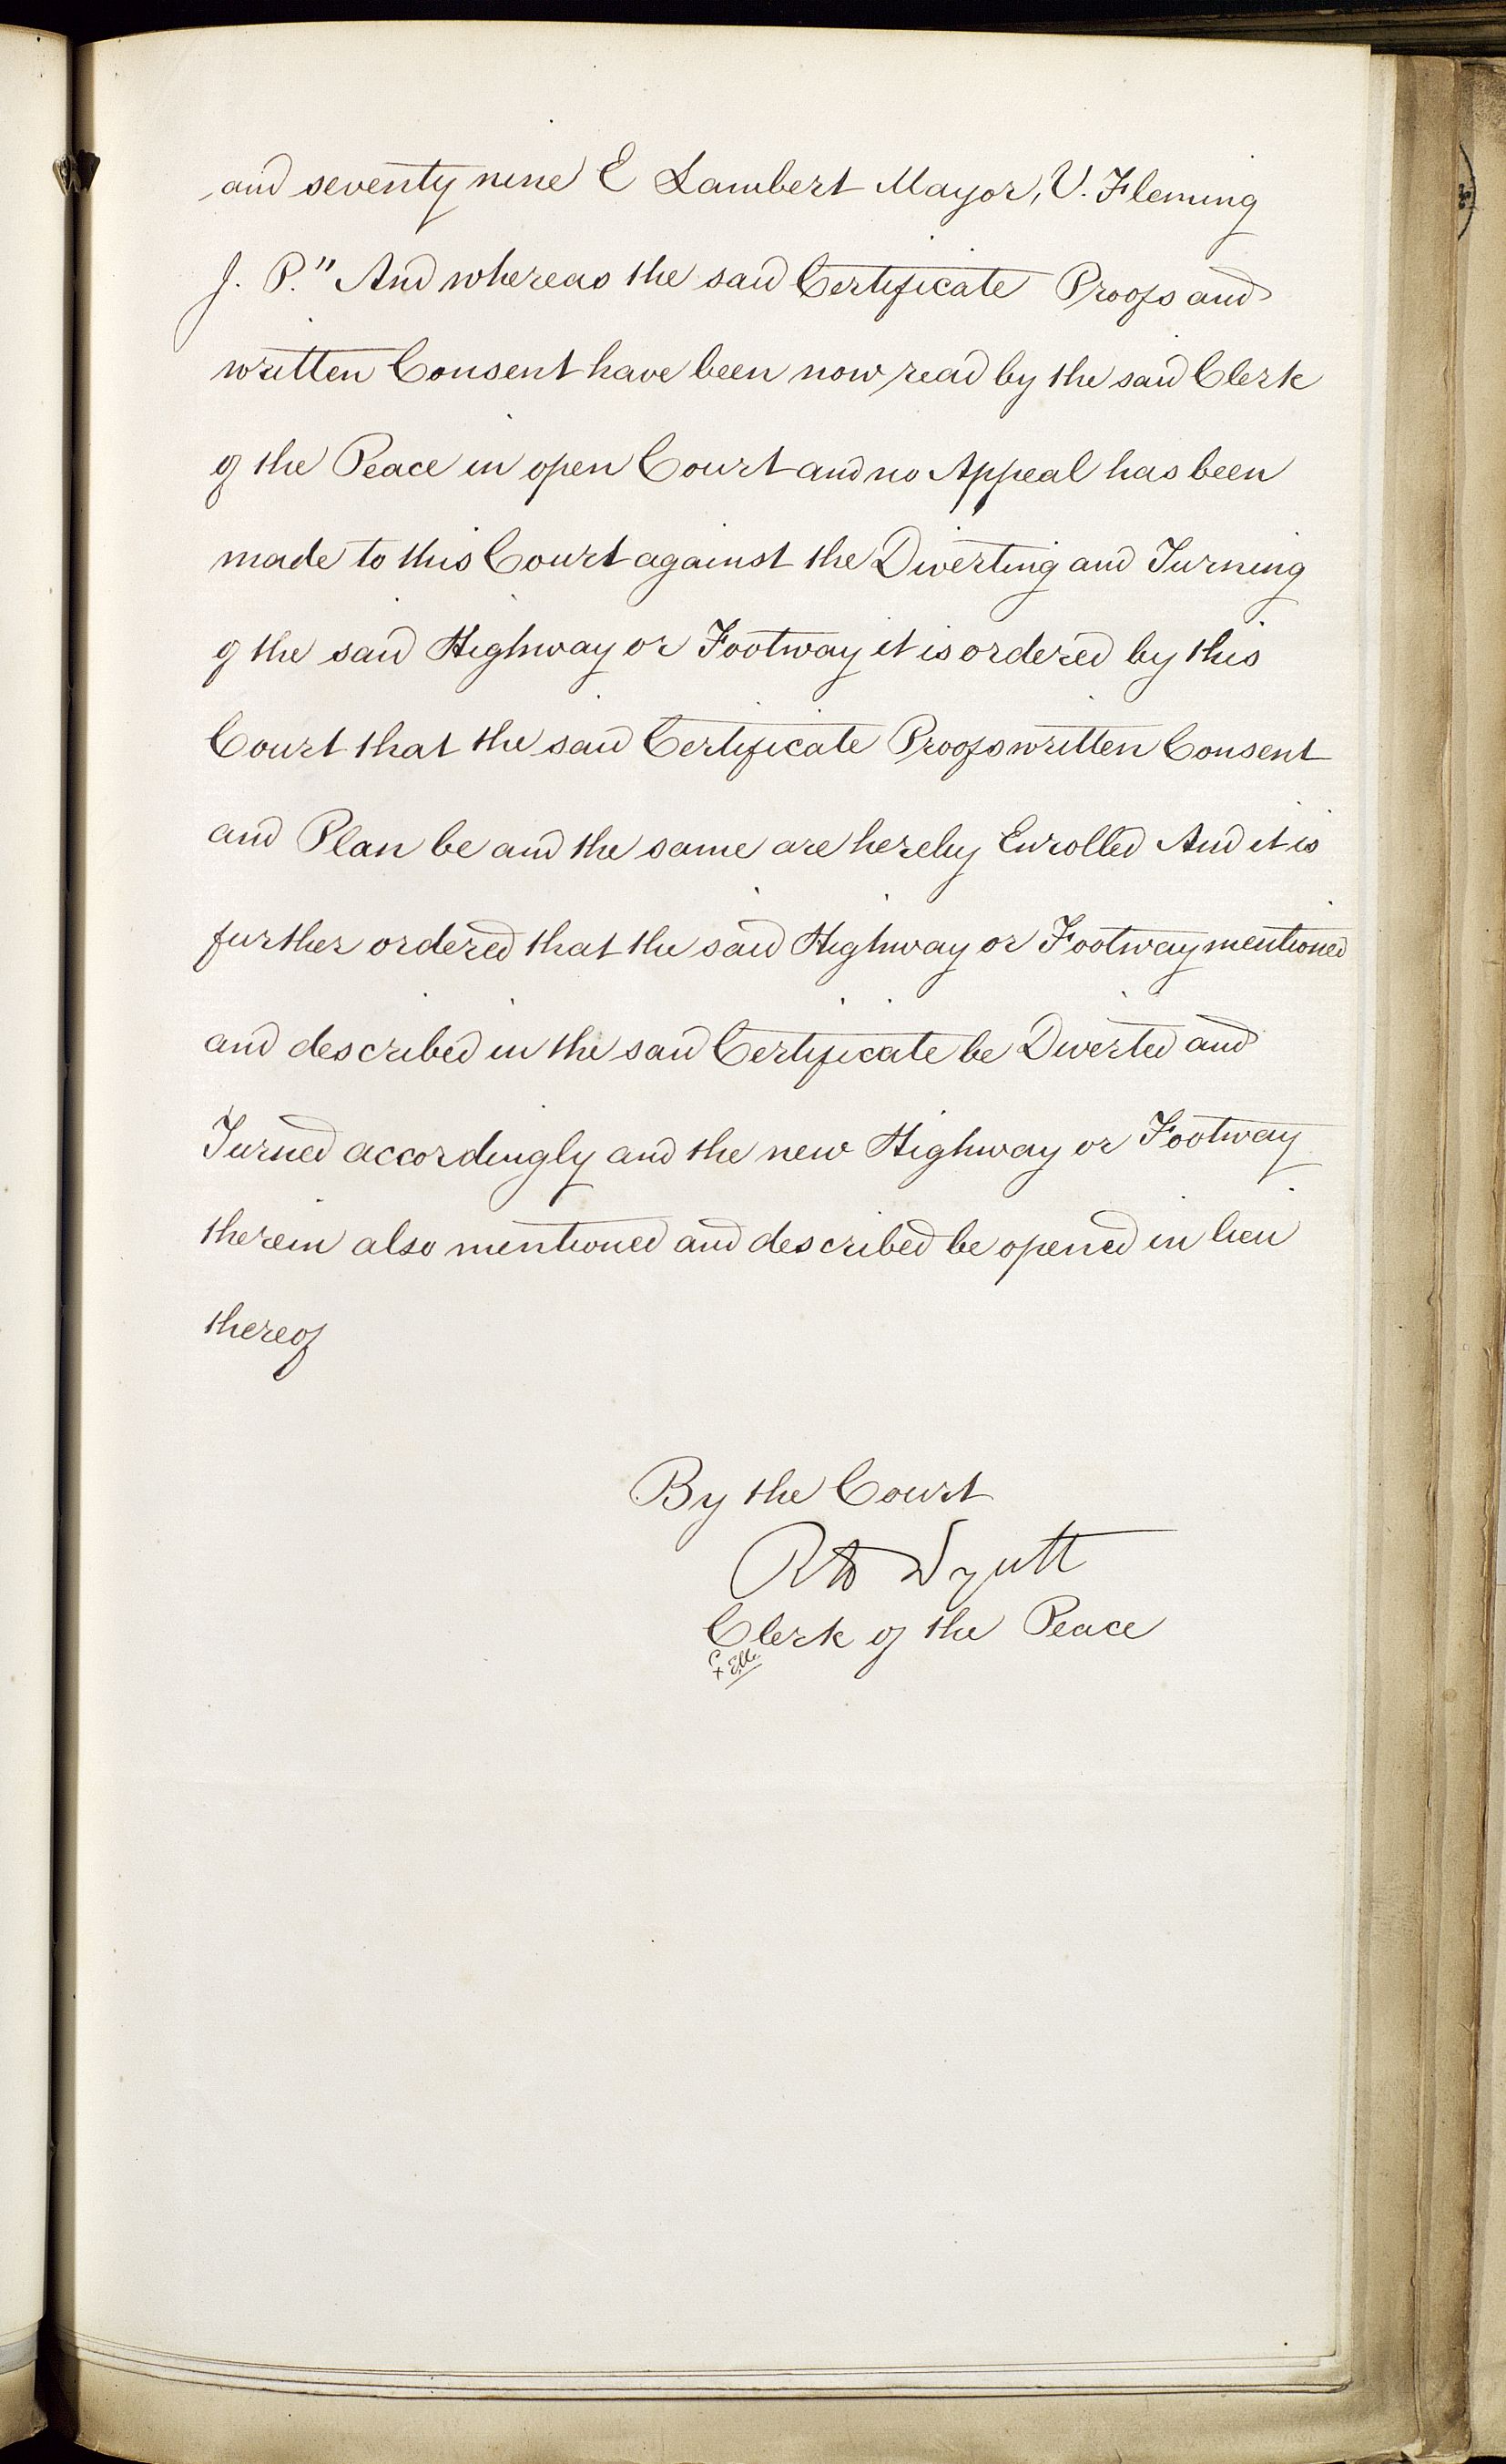 and seventy nine E Lambert Mayor, V. Fleming
J. P." And whereas the said Certificate Proofs and
written Consent have been now read by the said Clerk
of the Peace in open Court and no Appeal has been
made to this Court against the Diverting and Turning
of the said Highway or Footway it is ordered by this
Court that the said Certificate Proofs written Consent
and Plan be and the same are hereby Enrolled And it is
further ordered that the said Highway or Footway mentioned
and described in the said Certificate be Diverted and
Turned accordingly and the new Highway or Footway
therein also mentioned and described be opened in lieu
thereof
By the Court
Wyatt
Clerk of the Peace